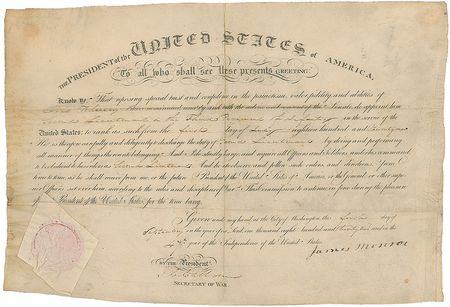 THE PRESIDENT of the UNITED STATES of AMERICA,
To all who shall see these presents GREETING:
Know Ye: That reposing special trust and confidence in the patriotism, valor, fidelity, and abilities of
I have nominated, and by and with the advice and consent of the Senate, do appoint him
Second Lieutenant in the in the service of the
United States: to rank as such from the first day of July eighteen hundred and
He is therefore carefully and diligently to discharge the duty of Second Lieutenant by doing and performing
all manner of things thereunto belonging. And I do strictly charge, and require all Officers and Soldiers under his command,
to be obedient to his orders as Second Lieutenant. And he is to observe and follow such orders, and directions, from
time to time, as he shall receive from me, or the future President of the United States of America, or the General or other
superior Officers set over him, according to the rules and discipline of War. This Commission to continue in force during the pleasure
of the President of the United States, for the time being.
Given under my hand, at the City of Washington, this day of
in the year of our Lord, one thousand eight hundred and and in the
year of the Independence of the United States.
By the President
James Monroe
J. C. Calhoun
SECRETARY OF WAR